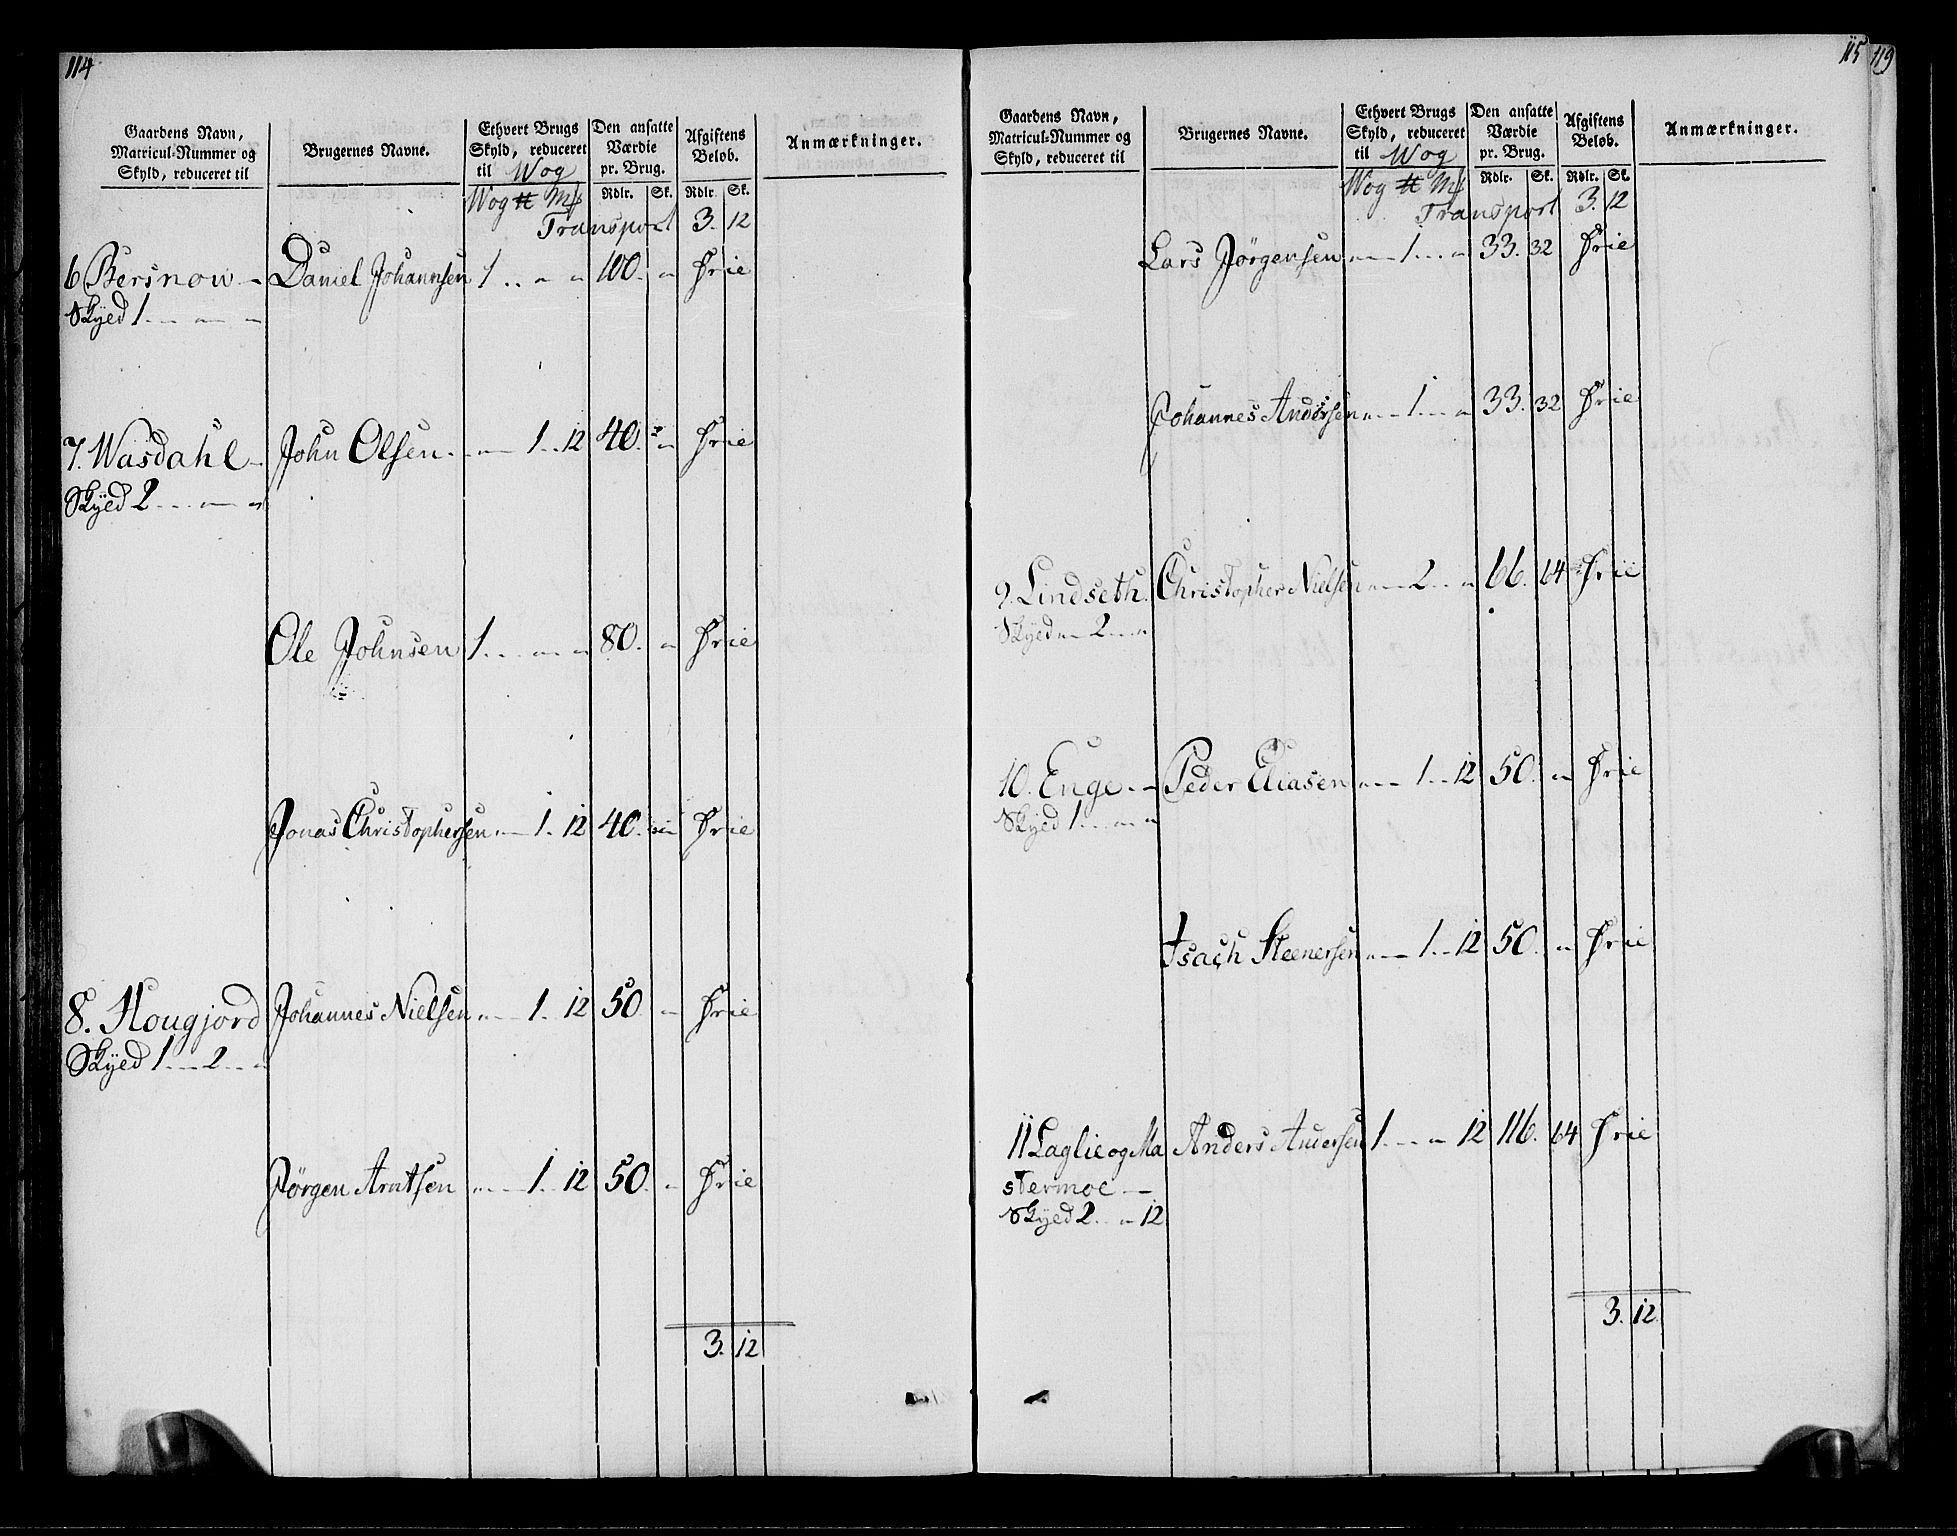 114
Gaardens Navn, Matricul-Nummer og Skyld, reduceret til
Brugernes Navne.
Ethvert Brugs Skyld, reduceret til Wog
Den ansatte Værdie pr. Brug.
Afgiftens Beløb.
Anmærkninger.
Wog Rdlr. Sk. Rdlr. Sk.
Transport 3. 12
6 Bersnow Daniel Johannsen 1 " " 100. " Frie
Skyed 1 " "
7. Wasdahl John Olsen " 1 12 40. " Frie
Skyed 2 " "
Ole Johnsen 1 " " 80. " Frie
Jonas Christophersen " 1. 12 40. " Frie
8. Hougjord Johannes Nielsen " 1. 12 50 " Frie
Skyed 1 2 "
Jørgen Arntsen " 1 12 50. " Frie
3. 12
115 119
Gaardens Navn, Matricul-Nummer og Skyld, reduceret til
Brugernes Navne.
Ethvert Brugs Skyld, reduceret til Wog
Den ansatte Værdie pr. Brug.
Afgiftens Beløb.
Anmærkninger.
Wog Rdlr. Sk. Rdlr. Sk.
Transport 3. 12
Lars Jørgensen " 1 " 33. 32 Frie
Johannes Andersen " 1 " 33. 32 Frie
9. Lindseth. Christopher Nielsen " 2 " 66. 64 Frie
Skyed " 2 "
10. Enge Peder Eliasen " 1 12 50. " Frie
Skyed 1 " "
Isach Steenersen " 1 12 50. " Frie
11 Laglie og Ma Anders Andersen 1 " 12 116. 64 Frie
stermoe
Skyed 2 " 12
3. 12